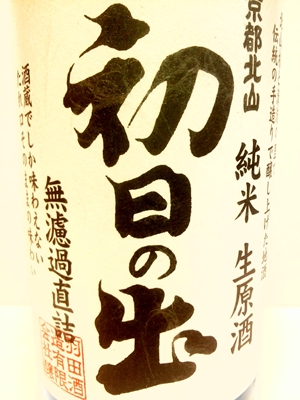 京都北山
伝統の手造りで醸し上げた地酒
純米 生原酒
初日の出
無濾過直詰
酒蔵でしか味わえない
羽田酒
造有限
会社醸